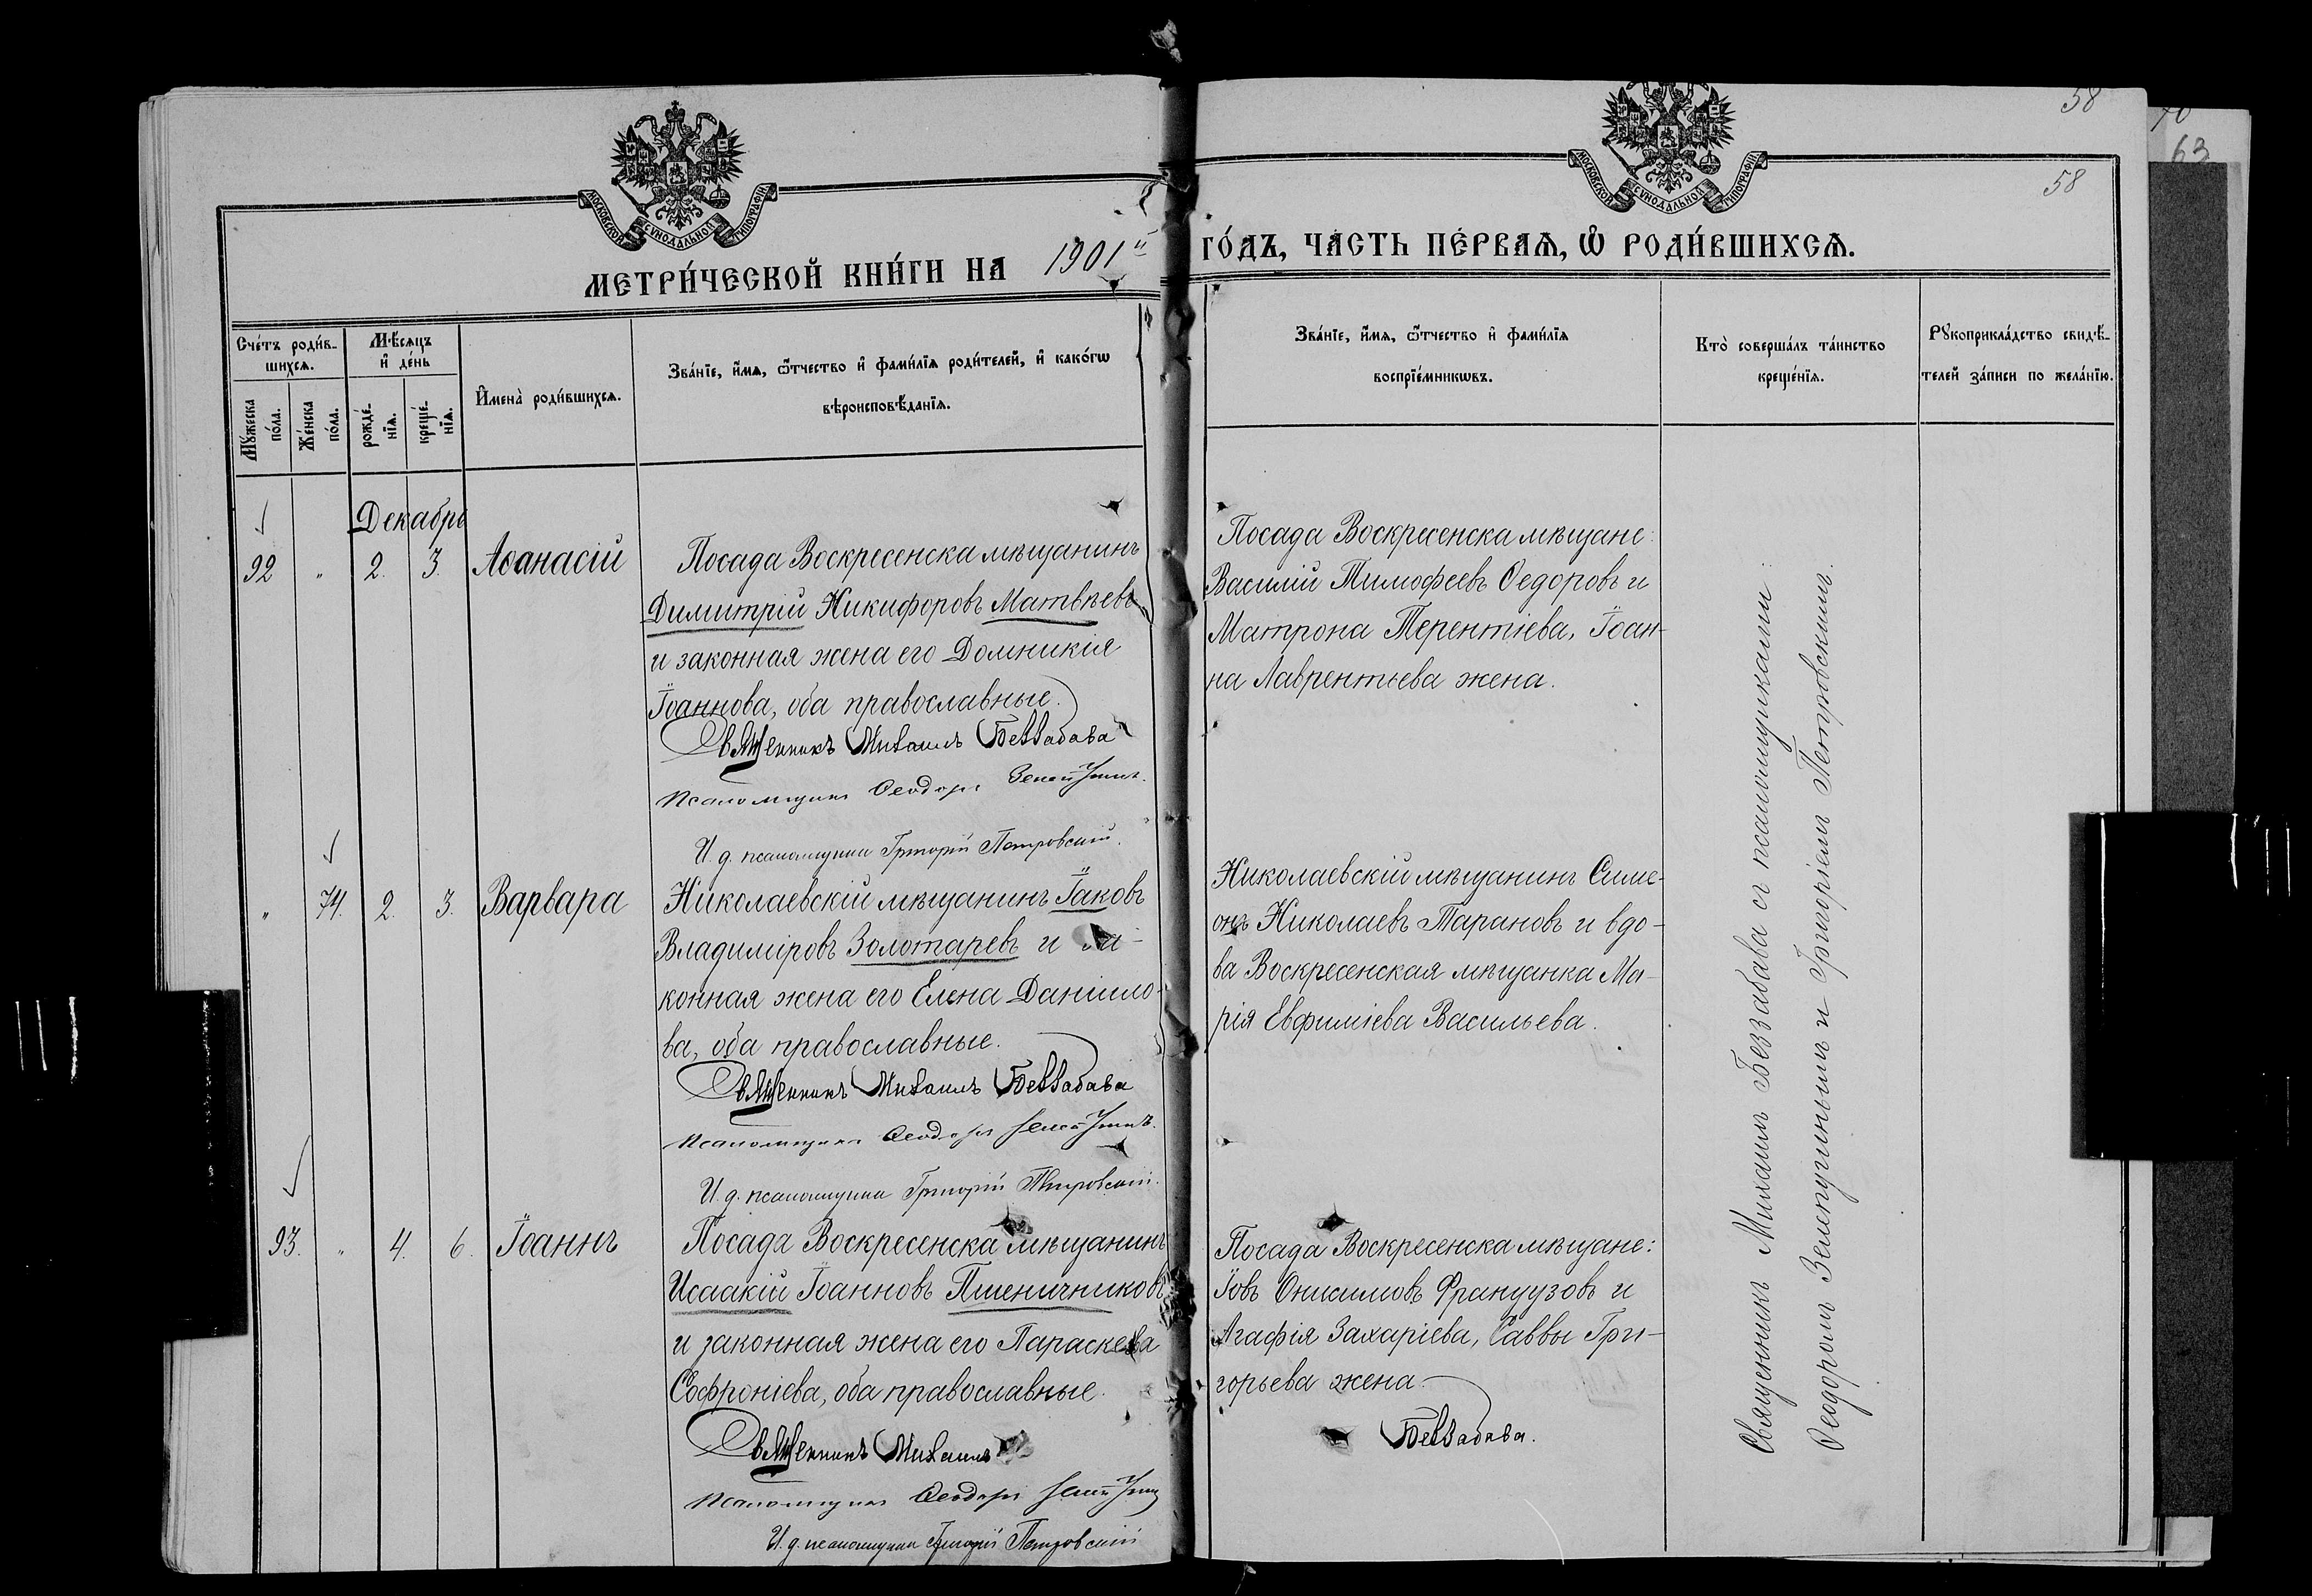 58
70
63
58
МОСКОВСКОЙ СѴНОДАЛЬНОЙ ТИПОГРАФІИ
МОСКОВСКОЙ СѴНОДАЛЬНОЙ ТИПОГРАФІИ
МЕТРИ́ЧЕСКОЙ КНИ́ГИ НА 1901й
ГО́ДЪ, ЧА́СТЬ ПЕ́РВАѦ, Ѡ҆ РОДИ́ВШИХСѦ.
Сче́тъ роди́в-
шихсѧ.
Мѣ́сѧцъ
и҆ де́нь
Мꙋ́жеска
по́ла.
Же́нска
по́ла.
рожде́-
нїѧ.
креще́-
нїѧ.
И҆мена̀ роди́вшихсѧ.
Зва́нїе, и҆́мѧ, ѻ҆́тчество и҆ фами́лїѧ роди́телей, и҆ како́гѡ
вѣроисповѣ́данїѧ.
Зва́нїе, и҆́мѧ, ѻ҆́тчество и҆ фами́лїѧ
воспрїе́мникѡвъ.
Кто̀ соверша́лъ та́инство
креще́нїѧ.
Рꙋкоприкла́дство свидѣ́-
телей за́писи по жела́нїю.
Декабрь
92 " 2. 3. Аѳанасій
Посада Воскресенска мѣщанинъ
Димитрій Никифоровъ Матвѣевъ
и законная жена его Домникія
Іоаннова, оба православные.
Священникъ Михаилъ Беззабава
Псаломщикъ Ѳеодоръ
И. д. псаломщика Григорій Петровскій.
Посада Воскресенска мѣщане:
Василій Тимофеевъ Ѳедоровъ и
Матрона Терентіева, Іоан-
на Лаврентьева жена.
" 74. 2. 3. Варвара
Николаевскій мѣщанинъ Іаковъ
Владиміровъ Золотаревъ и за-
конная жена его Елена Даніило-
ва, оба православные.
Священникъ Михаилъ Беззабава
Псаломщикъ Ѳеодоръ
И. д. псаломщика Григорій Петровскій.
Николаевскій мѣщанинъ Симе-
онъ Николаевъ Тарановъ и вдо-
ва Воскресенская мѣщанка Ма-
рія Евфиміева Васильева.
93. " 4. 6. Іоаннъ
Посада Воскресенска мѣщанинъ
Исаакій Іоанновъ Пшеничниковъ
и законная жена его Параскева
Софроніева, оба православные.
Священникъ Михаилъ
Псаломщикъ Ѳеодоръ
И. д. псаломщика Григорій Петровскій
Посада Воскресенска мѣщане:
Іовъ Онисимовъ Французовъ и
Агафія Захаріева, Саввы Гри-
горьева жена.
Беззабава.
Священникъ Михаилъ Беззабава съ псаломщиками:
Ѳеодоромъ Зелепугинымъ и Григоріемъ Петровскимъ.